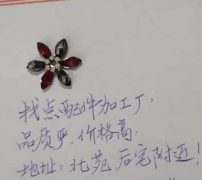 找点配件加工厂,
品质严,价格高:
地址:北苑后宅附近!